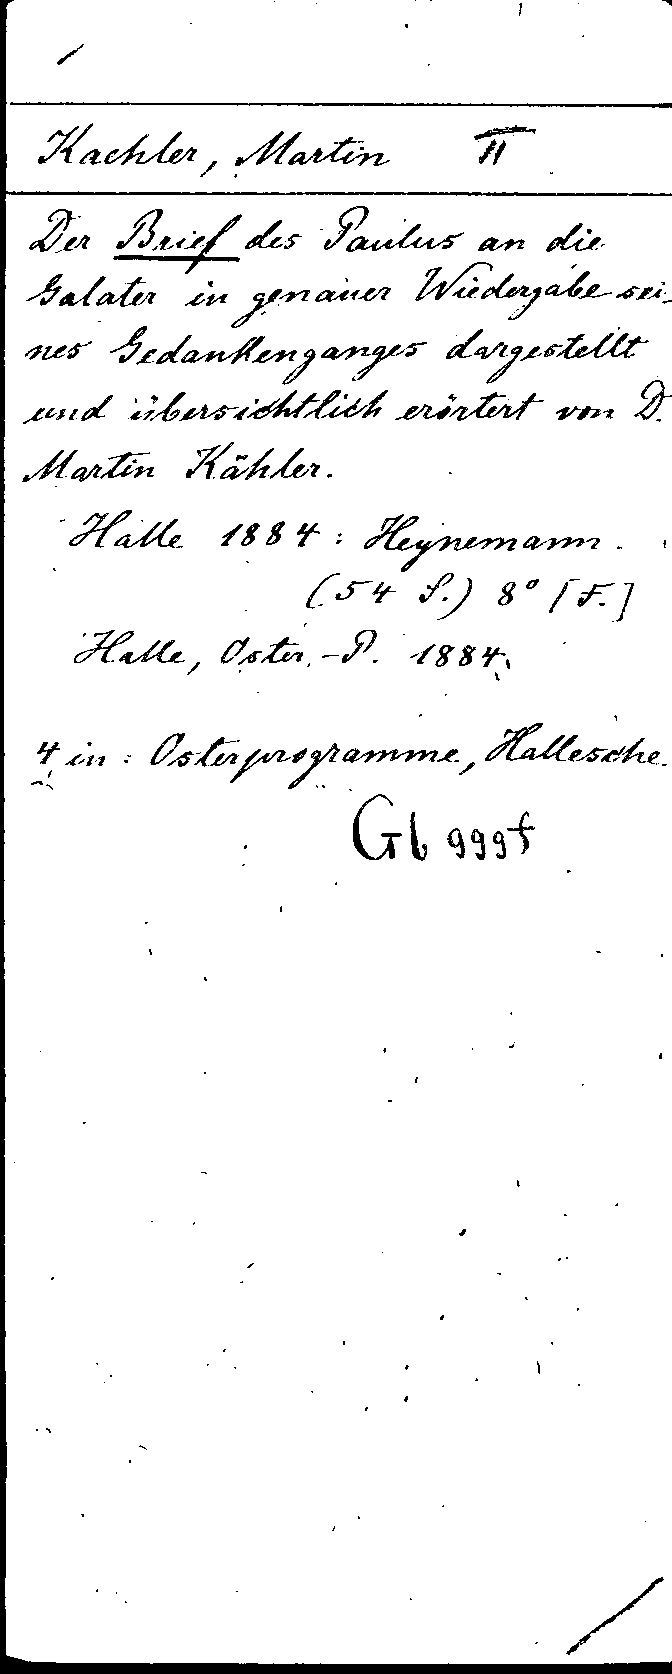 Kaehler, Martin II
Der Brief des Paulus an die
Galater in genauer Wiedergabe sei-
nes Gedankenganges dargestellt
und übersichtlich erörtert von D.
Martin Kähler.
Halle 1884: Heynemann.
(54 S.) 8° [F.]
Halle, Oster.-P. 1884.
4 in: Osterprogramme, Hallesche.
Gb 999f